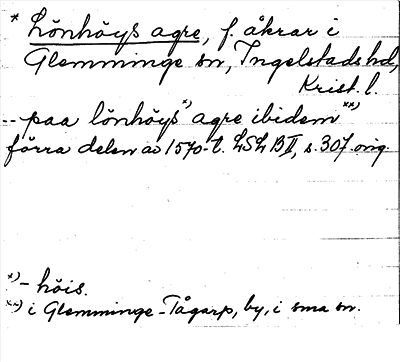 * Lönhöys agre, f. åkrar i
Glemminge sn, Ingelstads hd,
Krist. l.
-- paa lönhöys *) agre ibidem **)
förra delen av 1570-t. LSL B II, s. 307. orig.
*) - höis.
**) i Glemminge-Tågarp, by, i sma sn.